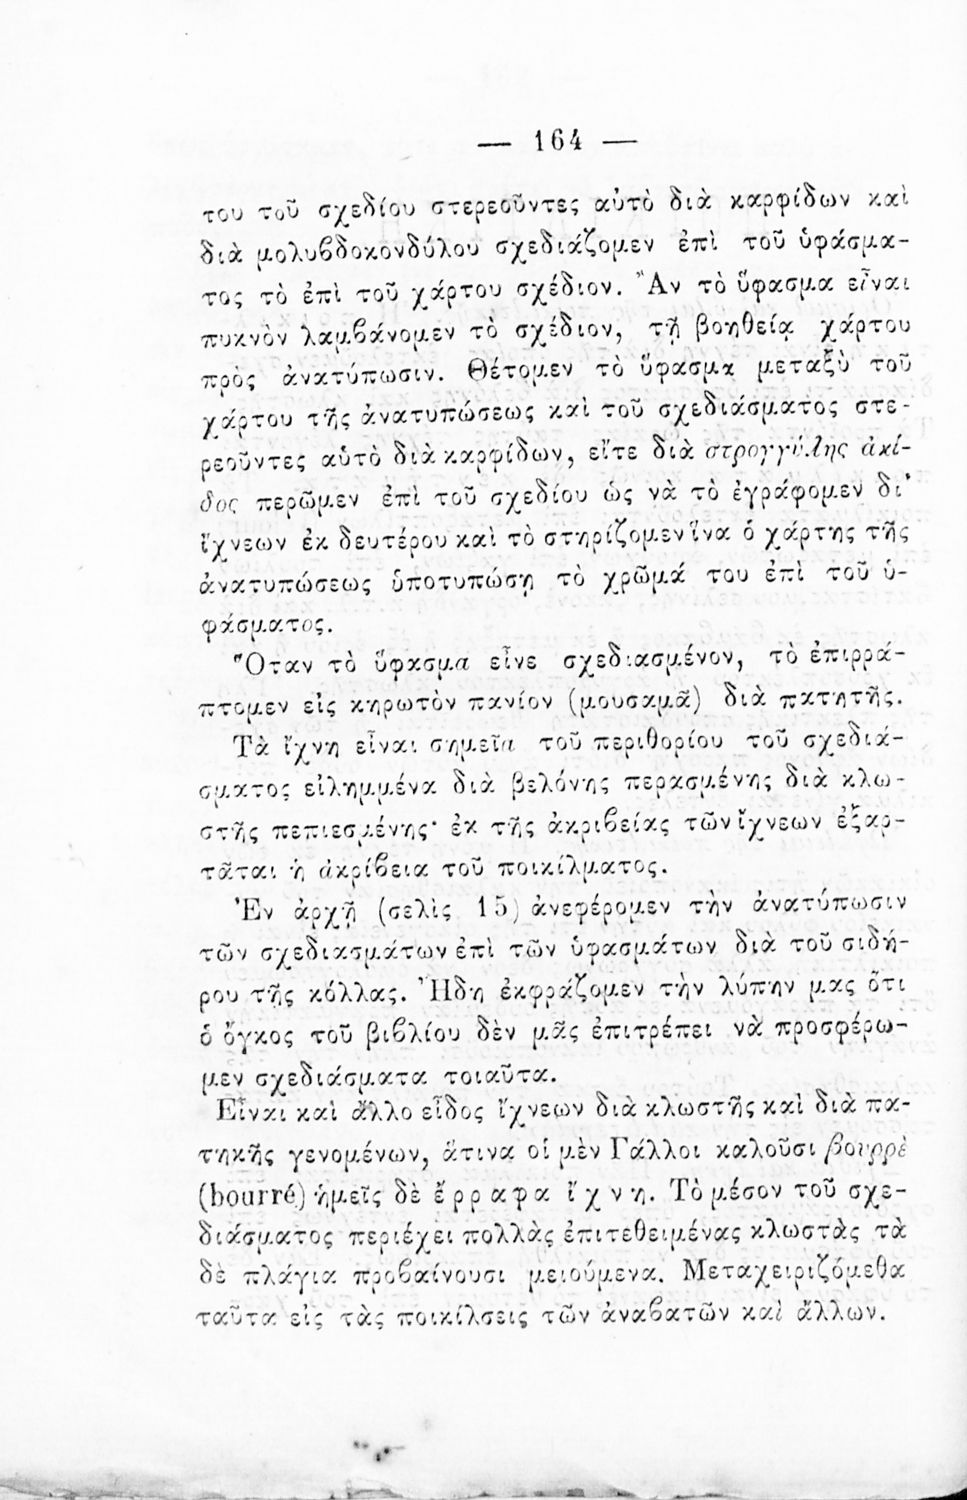 — 164 —
του τοῦ σχεδίου στερεοῦντες αὐτὸ διὰ καρφίδων καὶ
διὰ μολυβδοκονδύλου σχεδιάζομεν ἐπὶ τοῦ ὑφάσμα-
τος τὸ ἐπὶ τοῦ χάρτου σχέδιον. Ἂν τὸ ὕφασμα εἶναι
πυκνὸν λαμβάνομεν τὸ σχέδιον, τῇ βοηθείᾳ χάρτου
πρὸς ἀνατύπωσιν. Θέτομεν τὸ ὕφασμα μεταξὺ τοῦ
χάρτου τῆς ἀνατυπώσεως καὶ τοῦ σχεδιάσματος στε-
ρεοῦντες αὐτὸ διὰ καρφίδων, εἴτε διὰ στρογγύλης ἀκί-
δος περῶμεν ἐπὶ τοῦ σχεδίου ὡς νὰ τὸ ἐγράφομεν δι'
ἴχνεων ἐκ δευτέρου καὶ τὸ στηρίζομεν ἵνα ὁ χάρτης τῆς
ἀνατυπώσεως ὑποτυπώσῃ τὸ χρῶμά του ἐπὶ τοῦ ὑ-
φάσματος.
Ὅταν τὸ ὕφασμα εἶνε σχεδιασμένον, τὸ ἐπιρρά-
πτομεν εἰς κηρωτὸν πανίον (μουσαμᾶ) διὰ πατητῆς.
Τὰ ἴχνη εἶναι σημεῖα τοῦ περιθορίου τοῦ σχεδιά-
σματος εἰλημμένα διὰ βελόνης περασμένης διὰ κλω-
στῆς πεπιεσμένης· ἐκ τῆς ἀκριβείας τῶν ἴχνεων ἐξαρ-
τᾶται ἡ ἀκρίβεια τοῦ ποικίλματος.
Ἐν ἀρχῇ (σελὶς 15) ἀνεφέρομεν τὴν ἀνατύπωσιν
τῶν σχεδιασμάτων ἐπὶ τῶν ὑφασμάτων διὰ τοῦ σιδή-
ρου τῆς κόλλας. Ἤδη ἐκφράζομεν τὴν λύπην μας ὅτι
ὁ ὄγκος τοῦ βιβλίου δὲν μᾶς ἐπιτρέπει νὰ προσφέρω-
μεν σχεδιάσματα τοιαῦτα.
Εἶναι καὶ ἄλλο εἶδος ἴχνεων διὰ κλωστῆς καὶ διὰ πα-
τηκῆς γενομένων, ἅτινα οἱ μὲν Γάλλοι καλοῦσι βουρρὲ
(bourré) ἡμεῖς δὲ ἔρραφα ἴχνη. Τὸ μέσον τοῦ σχε-
διάσματος περιέχει πολλὰς ἐπιτεθειμένας κλωστὰς τὰ
δὲ πλάγια προβαίνουσι μειούμενα. Μεταχειριζόμεθα
ταῦτα εἰς τὰς ποικίλσεις τῶν ἀναβατῶν καὶ ἄλλων.